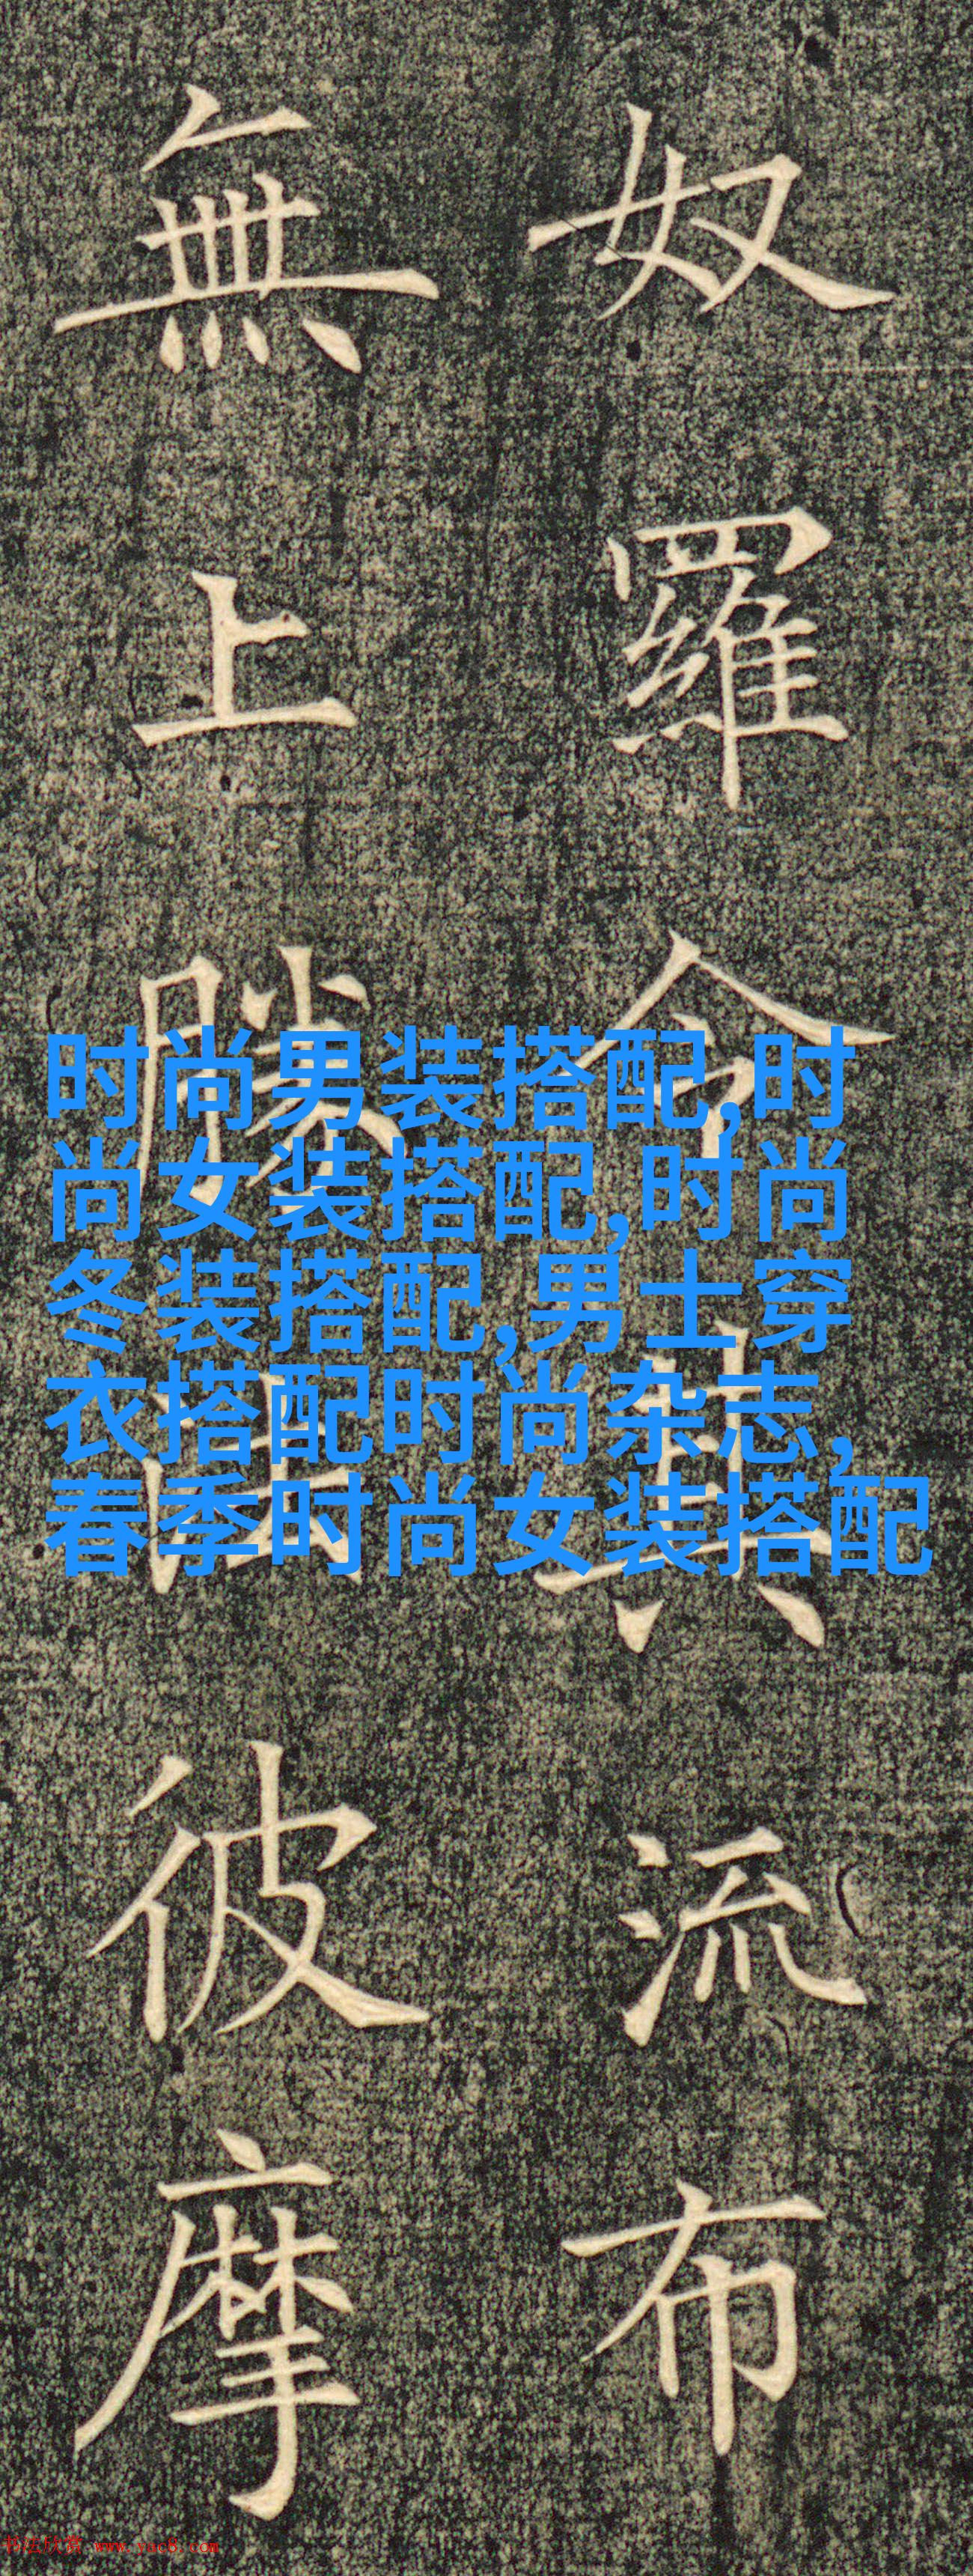 奴羅令其流布
無上勝法彼摩
时尚男装搭配,时
尚女装搭配,时尚
冬装搭配,男士穿
衣搭配时尚杂志,
春季时尚女装搭配
书法欣赏 www.yac8.com